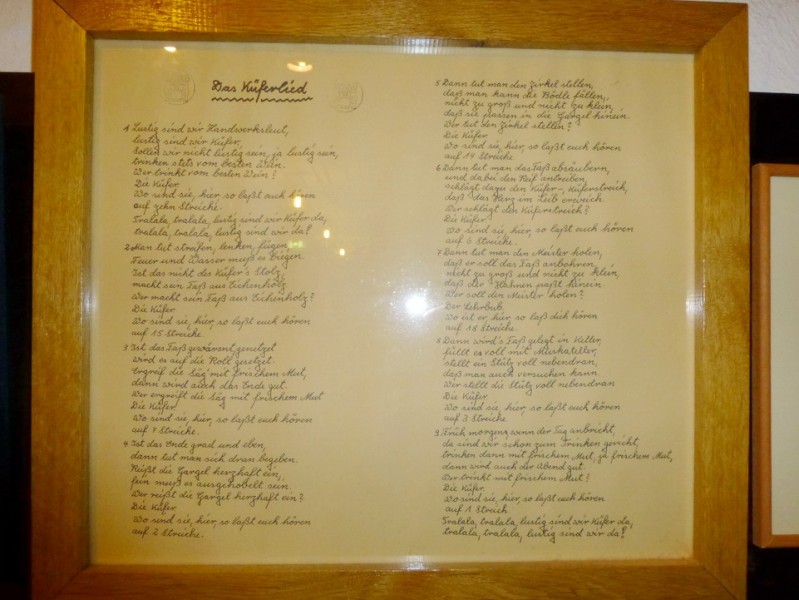 Das Küferlied
1 Lustig sind wir Handwerksleut,
lustig sind wir Küfer,
Sollen wir nicht lustig sein, ja lustig sein,
trinken stets vom besten Wein.
Wer trinkt vom besten Wein?
Die Küfer
Wo sind sie, hier, so laßt euch hören
auf zehn Streiche.
Tralala, tralala, lustig sind wir Küfer da,
tralala, tralala, lustig sind wir da!
2 Man tut streifen, lenken, fügen,
Feuer und Wasser muß es biegen.
Ist das nicht des Küfer's Stolz,
macht sein Faß aus Eichenholz
Wer macht sein Faß aus Eichenholz?
Die Küfer
Wo sind sie, hier, so laßt euch hören
auf 15 Streiche.
3 Ist das Faß gewärmt, genetzet
wird es auf die Roll gesetzet
Ergreif die Säg' mit frischem Mut,
dann wird auch das Ende gut.
Wer ergreift die Säg mit frischem Mut
Die Küfer
Wo sind sie, hier, so laßt euch hören
auf 7 Streiche.
4 Ist das Ende grad und eben,
dann tut man sich dran begeben.
Reißt die Gargel herzhaft ein,
fein muß es ausgehobelt sein.
Wer reißt die Gargel herzhaft ein?
Die Küfer
Wo sind sie, hier, so laßt euch hören
auf 2 Streiche.
5 Dann tut man den Zirkel stellen,
daß man kann die Bödle fällen,
nicht zu groß und nicht zu klein,
daß sie passen in die Gargel hinein.
Wer tut den Zirkel stellen?
Die Küfer
Wo sind sie, hier, so laßt euch hören
auf 14 Streiche.
6 Dann tut man das Faß absäubern,
und dabei den Reif antreiben,
schlägt dazu den Küfer-, Küferstreich,
daß das Herz im Leib erweich.
Wer schlägt den Küferstreich?
Die Küfer
Wo sind sie, hier, so laßt euch hören
auf 6 Streiche.
7 Dann tut man den Meister holen,
daß er soll das Faß anbohren,
nicht zu groß und nicht zu klein,
daß der Hahnen paßt hinein.
Wer soll den Meister holen?
Der Lehrbub
Wo ist er, hier, so laß dich hören
auf 16 Streiche.
8 Dann wird's Faß gelegt in Keller,
füllt es voll mit Muskateller,
stellt ein Stütz voll nebendran,
daß man auch versuchen kann.
Wer stellt die Stütz voll nebendran
Die Küfer
Wo sind sie, hier, so laßt euch hören
auf 3 Streiche.
9 Früh morgens wenn der Tag anbricht,
da sind wir schon zum Trinken gericht,
trinken dann mit frischem Mut, ja frischem Mut,
dann wird auch der Abend gut.
Wer trinkt mit frischem Mut?
Die Küfer
Wo sind sie, hier, so laßt euch hören
auf 1 Streich
Tralala, tralala, lustig sind wir Küfer da,
tralala, tralala, lustig sind wir da!